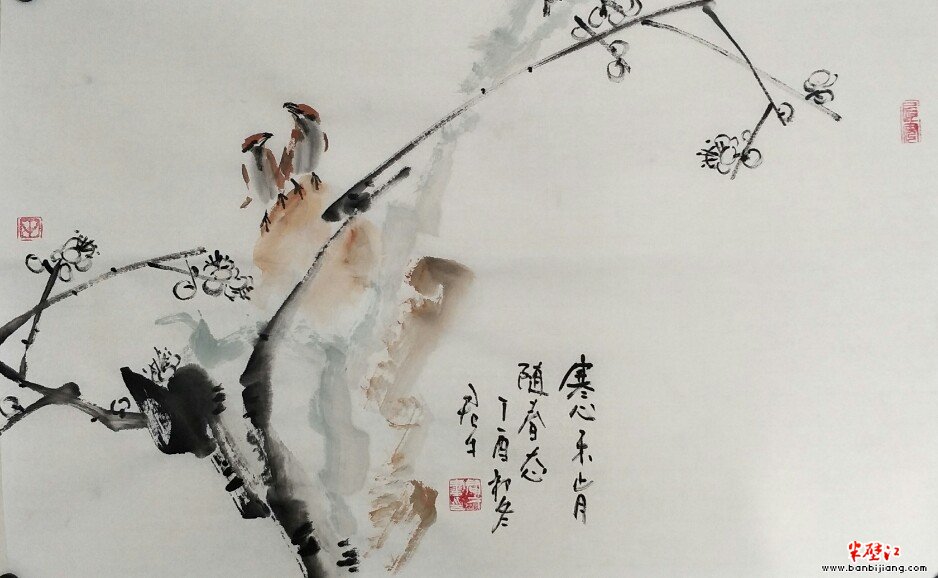 寒心未肯
随春态
丁酉初冬
半壁江
www.banbijiang.com